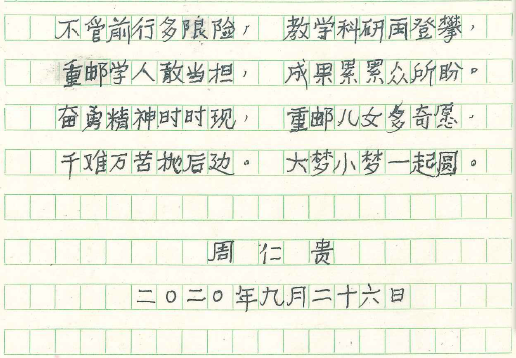 不管前行多艰险， 教学科研再登攀，
重邮学人敢当担， 成果累累众所盼。
奋勇精神时时现， 重邮儿女多奇愿，
千难万苦抛后边。 大梦小梦一起圆。
周仁贵
二〇二〇年九月二十六日